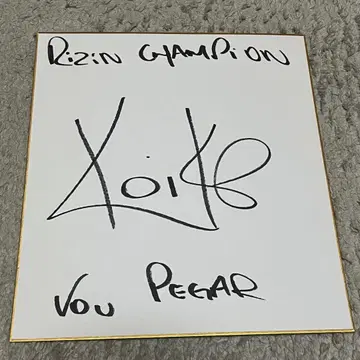 RizIN CHAMPiON
KoiKe
VOU PEGAR